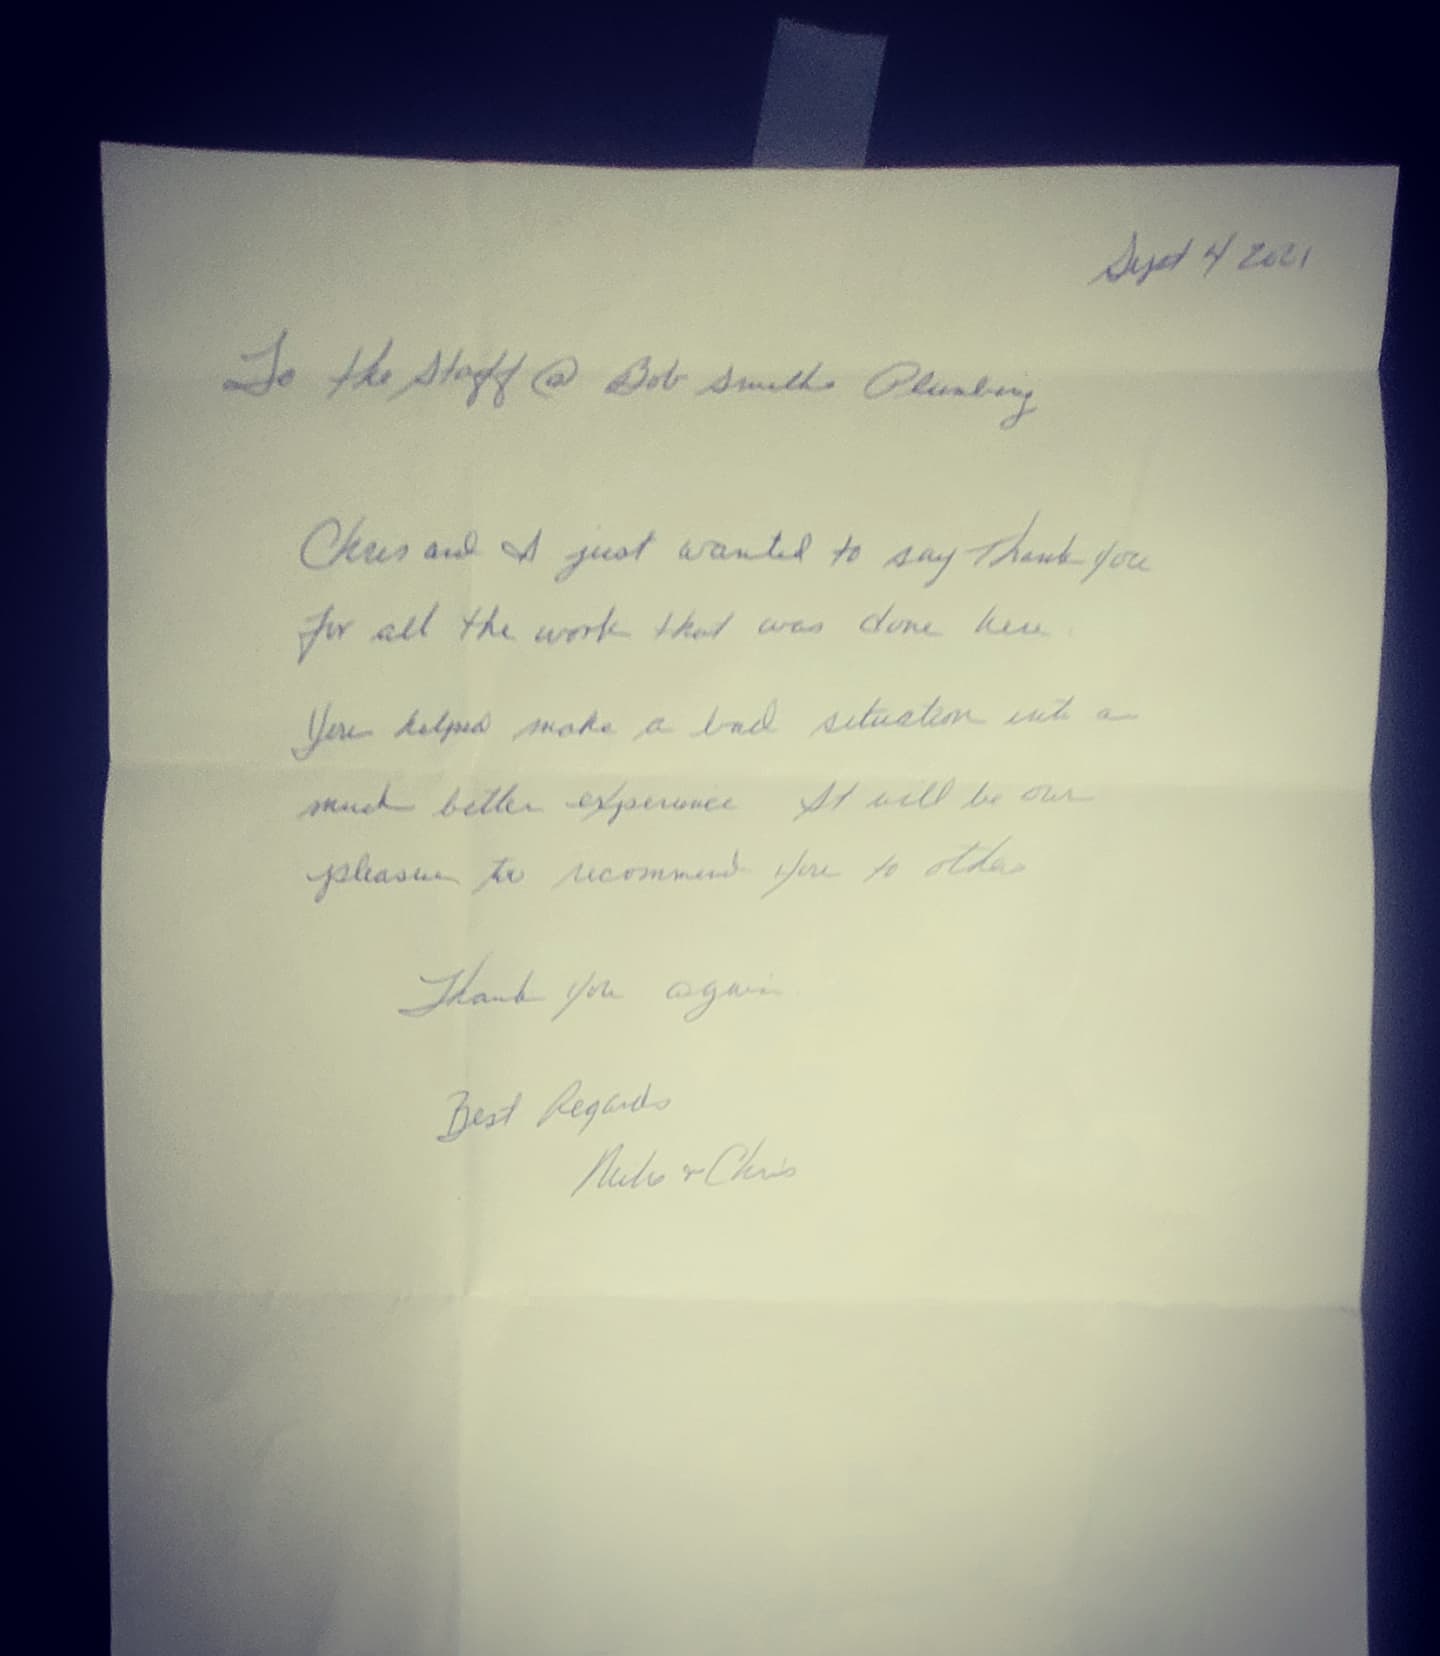 Sept 4 2021
To the Staff @ Bob Smiths Plumbing
Chris and I just wanted to say Thank you
for all the work that was done here.
You helped make a bad situation into a
much better experience It will be our
pleasure to recommend you to others
Thank you again
Best Regards
& Chris